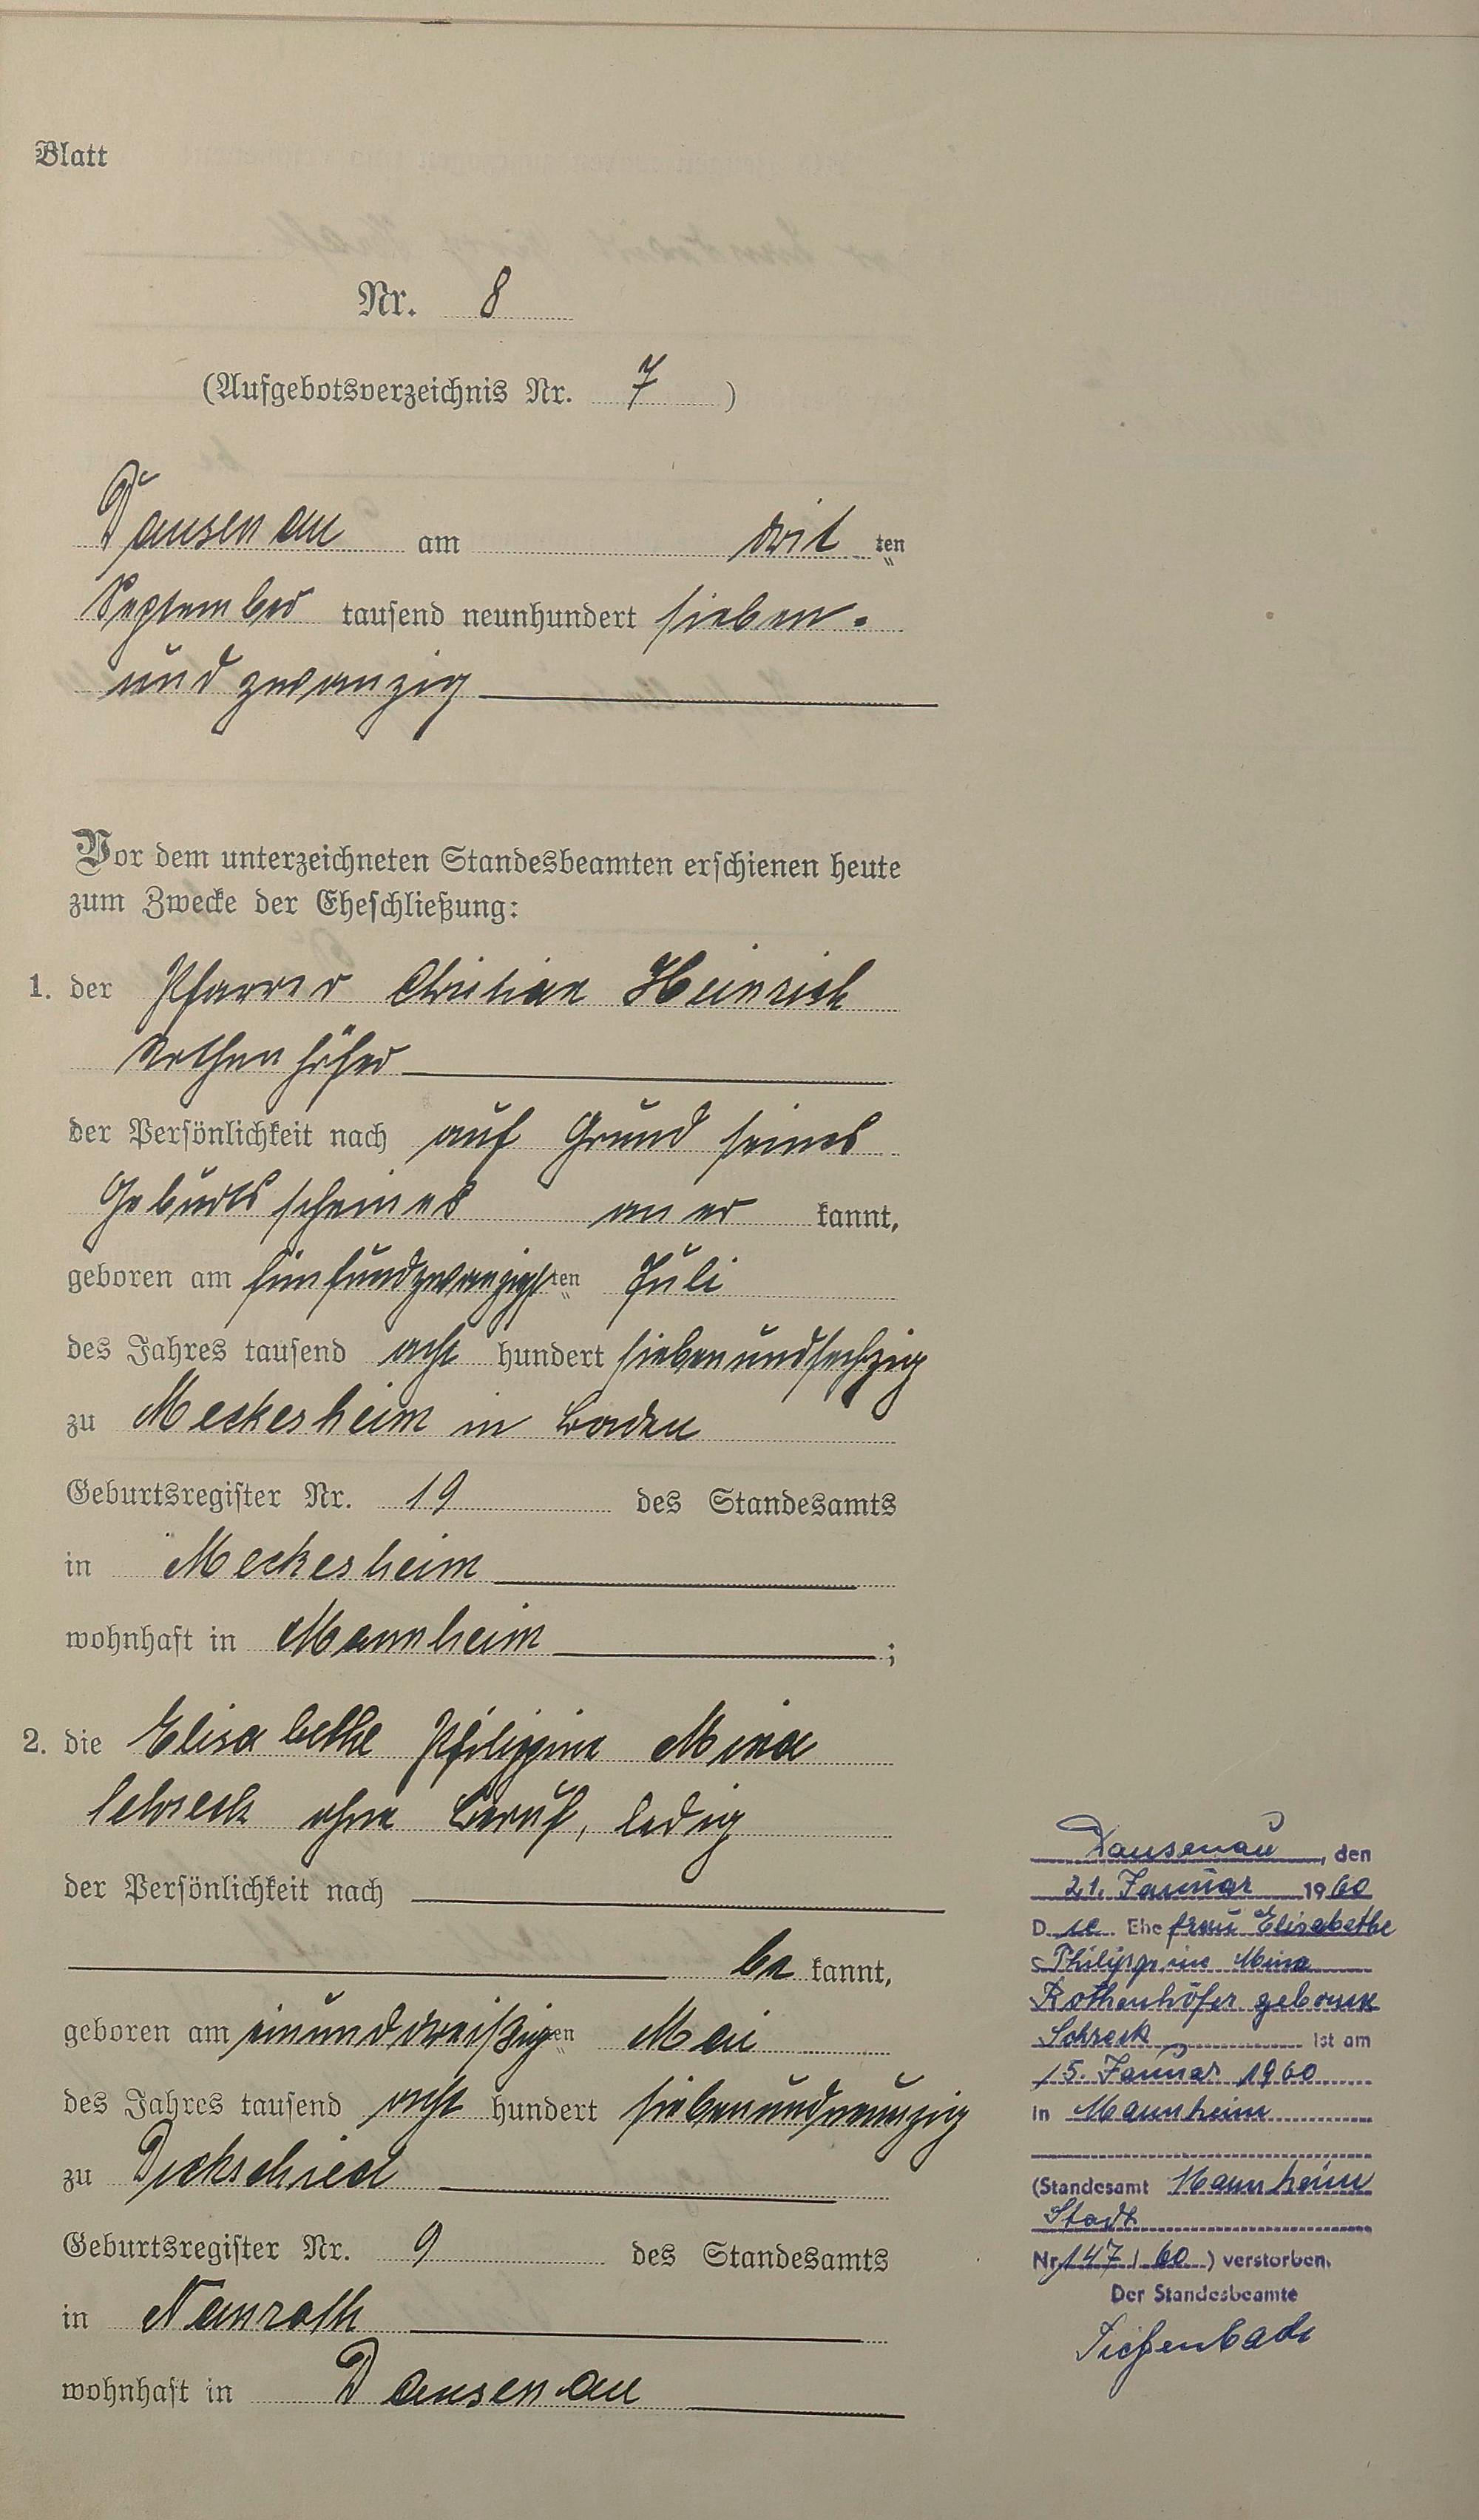 Blatt
Nr. 8
(Aufgebotsverzeichnis Nr. 7 )
Dausenau am drit ten
September tausend neunhundert sieben-
und zwanzig
Vor dem unterzeichneten Standesbeamten erschienen heute
zum Zwecke der Eheschließung:
1. der Pfarrer Christian Heinrich
Rothenhöfer
der Persönlichkeit nach auf Grund seines
Geburtsscheines aner kannt,
geboren am fünfundzwanzigsten Juli
des Jahres tausend acht hundert siebenundsechzig
zu Meckesheim in Baden
Geburtsregister Nr. 19 des Standesamts
in Meckesheim
wohnhaft in Mannheim ;
2. die Elisabethe Philippine Mina
Schreck ohne Beruf, ledig
der Persönlichkeit nach
be kannt,
geboren am einunddreißigsten Mai
des Jahres tausend acht hundert siebenundneunzig
zu Dickschied
Geburtsregister Nr. 9 des Standesamts
in
wohnhaft in Dausenau
Dausenau, den
21. Januar 1960
Die Ehefrau Elisabethe
Philippine Mina
Rothenhöfer geborene
Schreck ist am
15. Januar 1960
in Mannheim
(Standesamt Mannheim
Stadt
Nr. 147 / 60 ) verstorben.
Der Standesbeamte